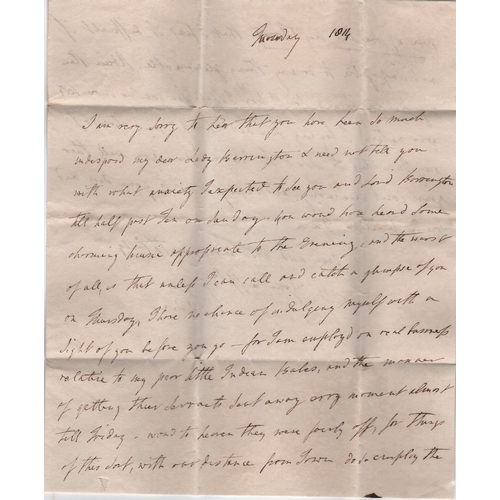 Tuesday 1814
I am very sorry to hear that you have been so much
indisposed my dear Lady Barrington & need not tell you
with what anxiety I expected to see you and Lord Barrington
till half past Ten on Sunday. you would have heard some
charming music appropriate to the Evening, and the worst
of all, is that unless I can call and catch a glimpse of you
on Thursday, I have no chance of indulging myself with a
sight of you before you go – for I am employd on real business
relative to my poor little Indian Babes, and the manner
of getting their Servants sent away every moment almost
till Friday – woud to heaven they were fairly off, for things
of this sort, with our distance from Town do so employ the